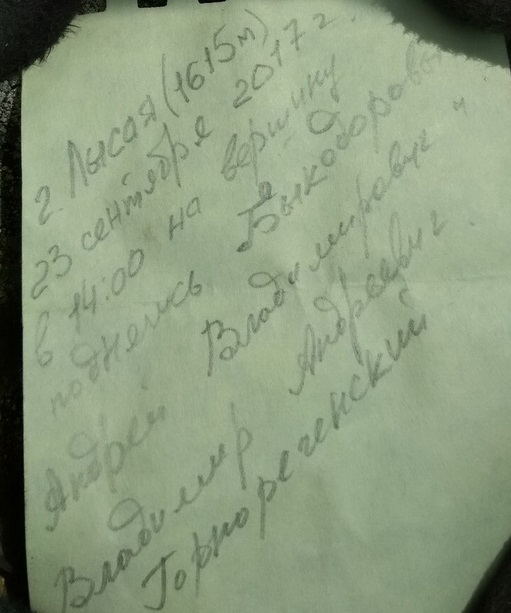 г. Лысая (1615м)
23 сентября 2017 г.
в 14:00 на вершину
поднялись Быкодоровы
Андрей Владимирович и
Владимир Андреевич г.
Горнореченский